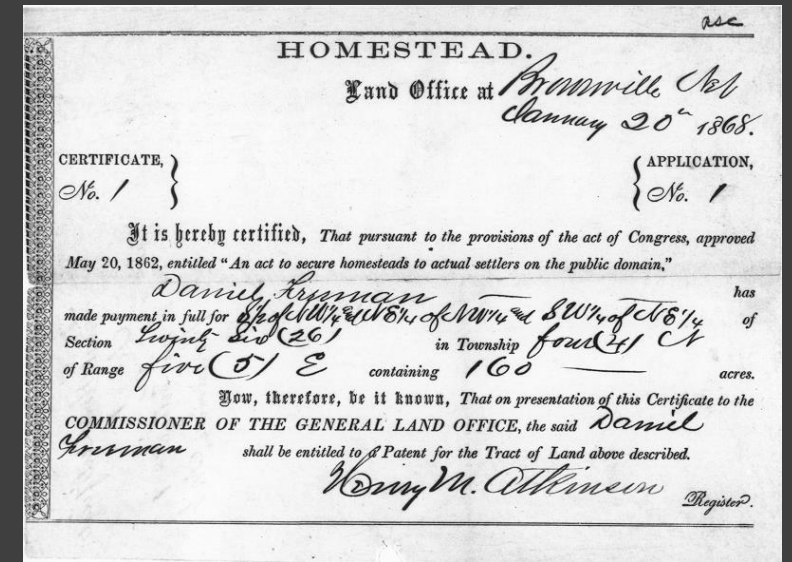 asc
HOMESTEAD.
Land Office at Brownville Neb
January 20th 1868.
CERTIFICATE, No. 1
APPLICATION, No. 1
It is hereby certified, That pursuant to the provisions of the act of Congress, approved
May 20, 1862, entitled “An act to secure homesteads to actual settlers on the public domain,”
Daniel Freeman has
made payment in full for S½ of NW¼ & NE¼ of NW¼ and SW¼ of NE¼ of
Section Twenty Six (26) in Township four (4) N
of Range five (5) E containing 160 acres.
Now, therefore, be it known, That on presentation of this Certificate to the
COMMISSIONER OF THE GENERAL LAND OFFICE, the said Daniel
Freeman shall be entitled to a Patent for the Tract of Land above described.
Henry M. Atkinson
Register.